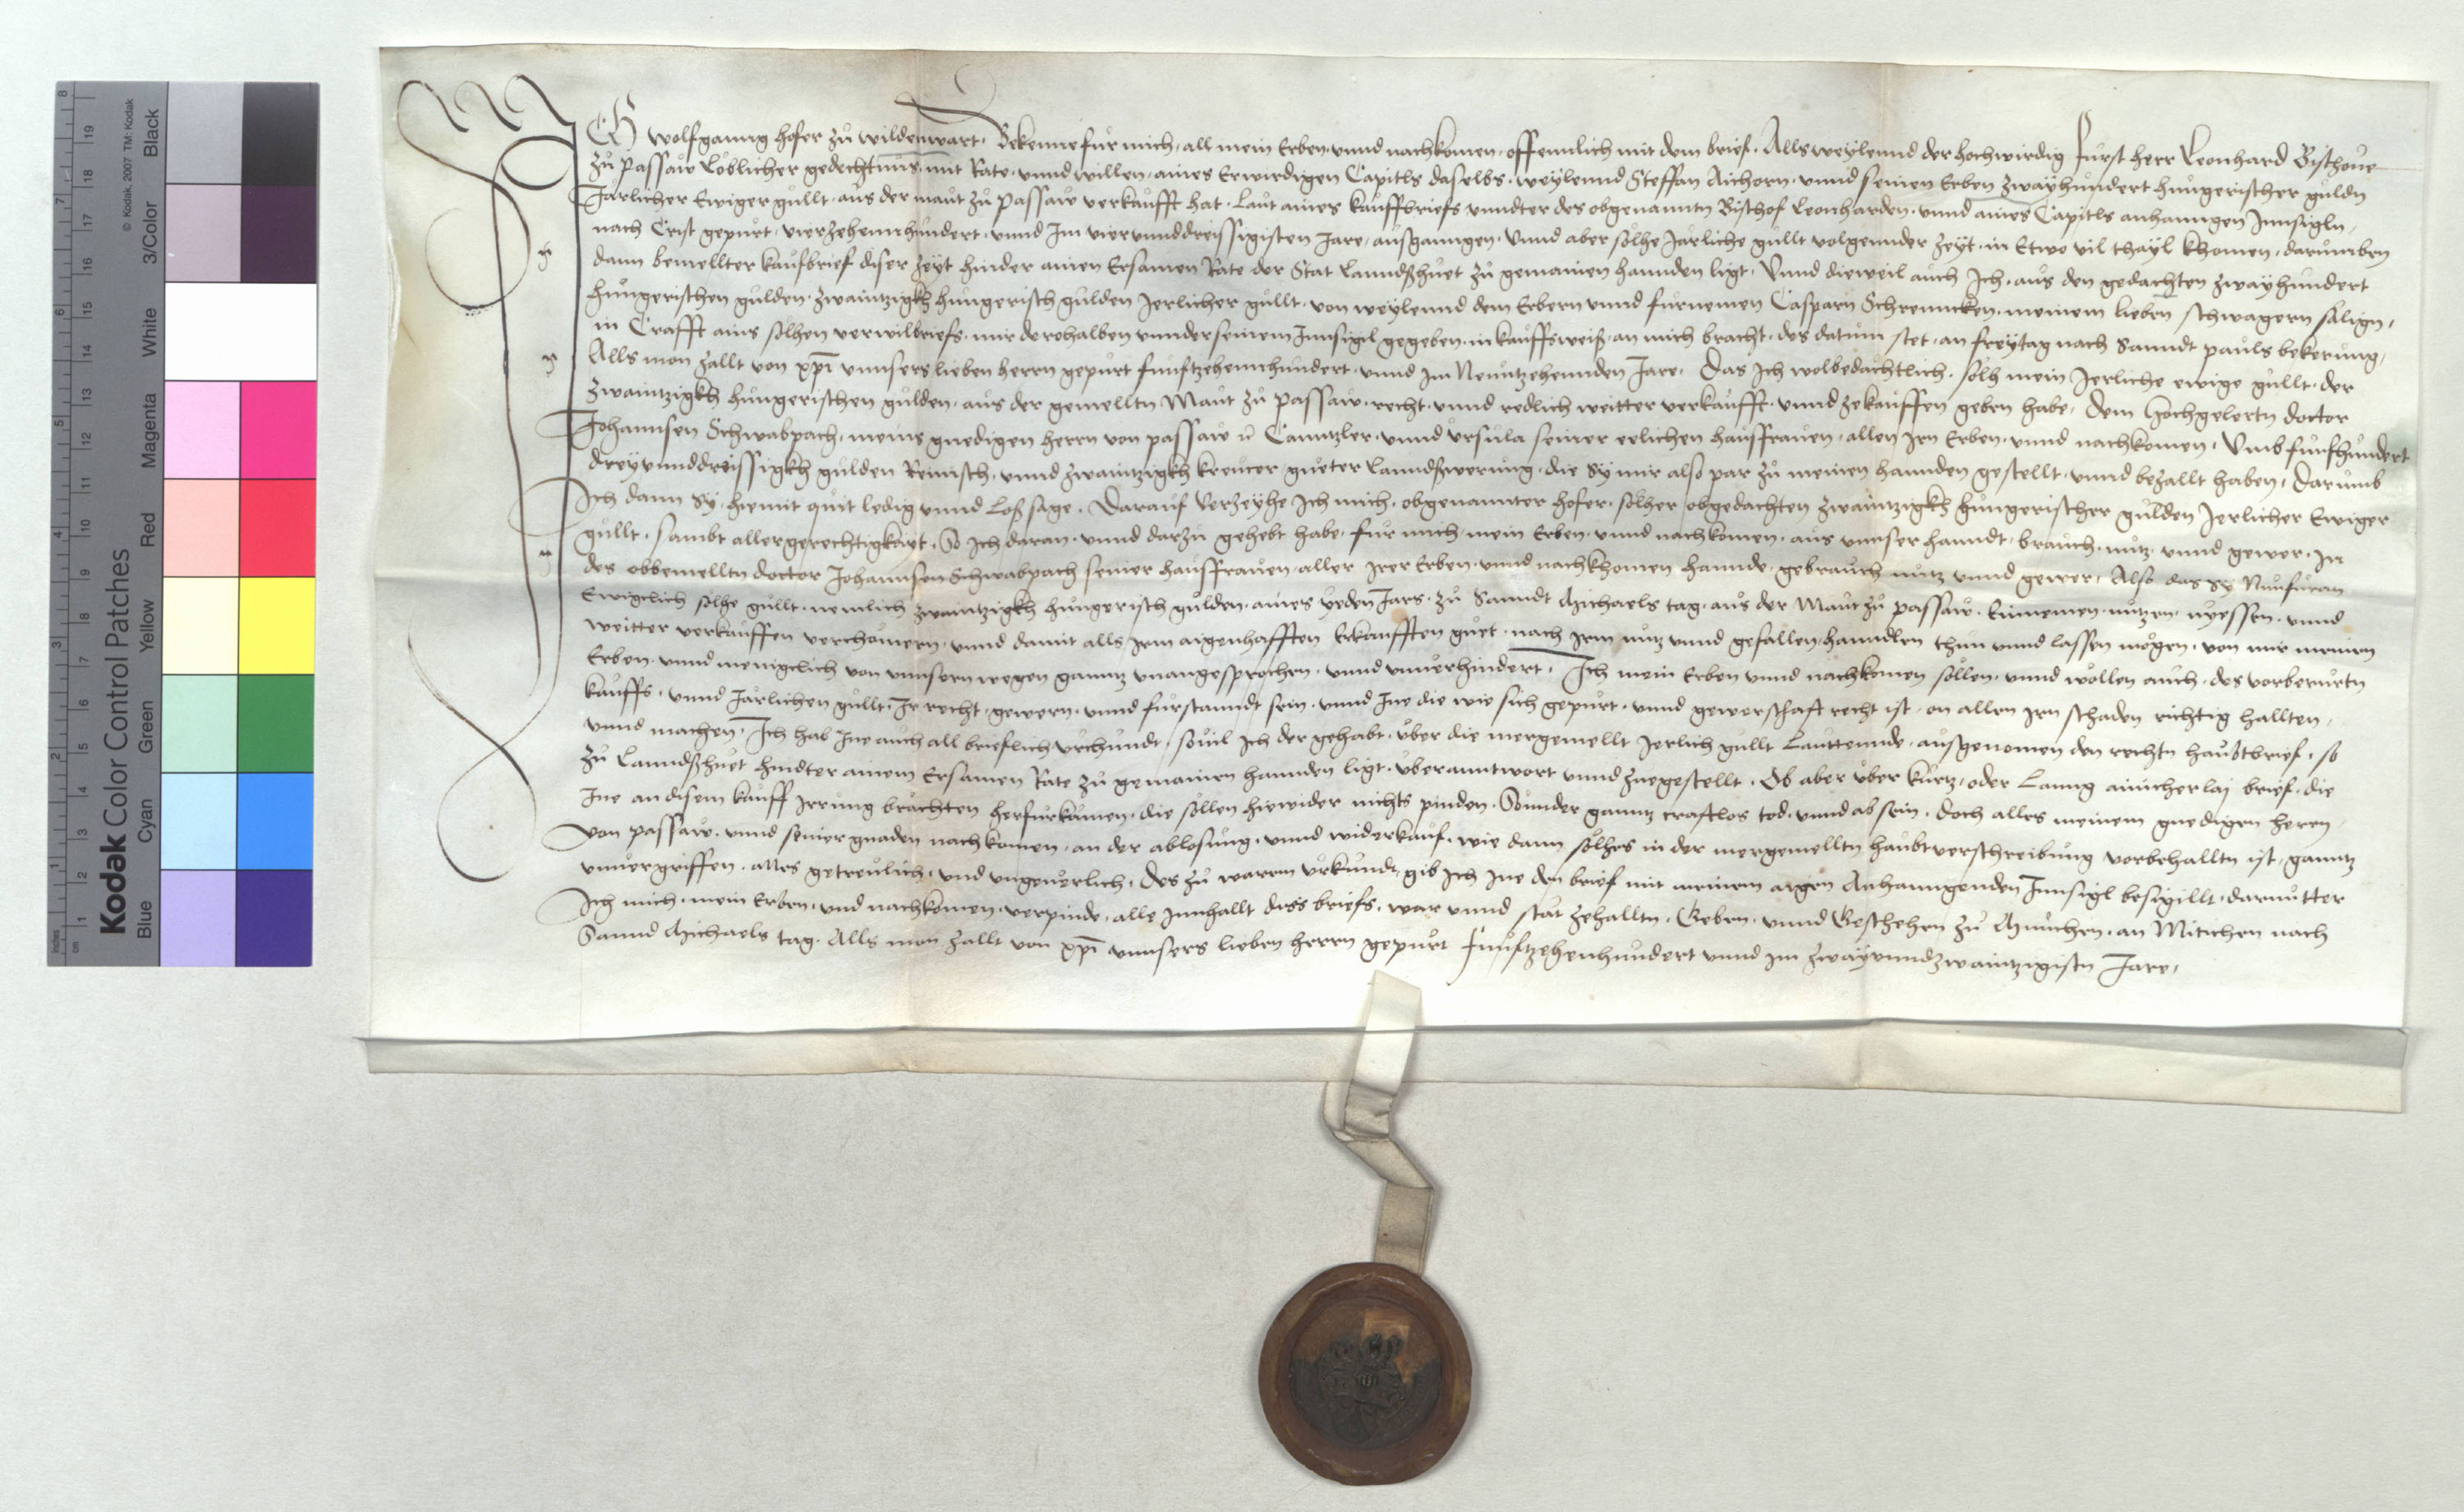 ICH wolfganng hofer zů wildenwart. Bekenne für mich, all mein Erben vnnd nachkomen, offennlich mit dem brief. Alls weylennd der hochwirdig Fürst herr Leonhard Bischoue
zů Passaw Loblicher gedechtnus, mit Rate, vnnd willen, aines Erwirdigen Capitls daselbs, weylennd Steffan Aichorn, vnnd seinen Erben zwayhundert hungerischer guldn
Järlicher Ewiger gullt, aus der maut zů Passaw verkaufft hat, Laut aines kauffbriefs vnndter des obgenanntn Bischof Leonharden, vnnd aines Capitls anhanngen Innsigln,
nach Crist gepurt, vierzehennhundert, vnnd Im viervnnddreissigisten Jare, außganngen, Vnnd aber solhe Järliche gullt volgennder zeyt, in Etwo vil thayl khomen, darumben
dann bemellter kaufbrief diser zeyt hinder ainen Ersamen Rate der Stat Lanndßhuet zů gemainen hannden ligt, Vnnd dieweil auch Ich, aus den gedachten zwayhundert
hungerischen gulden, zwaintzigkh hungerisch gulden Jerlicher gullt, von weylennd dem Erbern vnnd furnemen Casparn Schrennckhen, meinem lieben schwagern säligen,
in Crafft ains solhen verwilbriefs, mir derohalben vnnder seinem Innsigl gegeben, in kauffsweiß, an mich bracht, des datum stet, an freytag nach Sanndt pauls bekerung,
Alls mon zallt von xp̄i vnnsers lieben herrn gepurt funftzehennhundert, vnnd Im Neuntzehennden Jare. Das Ich wolbedächtlich, solh mein Jerliche ewige gullt, der
zwaintzigkh hungerischen gulden, aus der gemelltn Maut zů passaw, recht, vnnd redlich weitter verkaufft, vnnd zekauffen geben habe, dem Hochgelertn doctor
Johannsen Schwabpach, meins gnedigen herrn von passaw Canntzler, vnnd vrsula seiner eelichen hausfrauen, allen Irn Erben, vnnd nachkomen, Vmb funfhundert
dreyvnnddreissigkh gulden Reinisch, vnnd zwaintzigkh kreutzer gueter Lanndßwerung, die sy mir also par zů meinen hannden gestellt, vnnd bezallt haben, Darumb
Ich dann sy, hiemit quit ledig vnnd Loß sage. Darauf Verzeyhe Ich mich, obgenannter hofer, solher obgedachten zwaintzigkh hungerischer gulden Jerlicher Ewiger
gullt, sambt aller gerechtigkayt, So Ich daran, vnnd darzů gehebt habe, für mich, mein Erben, vnnd nachkomen, aus vnnser hanndt, brauch, nutz, vnnd gewer, In
des obbemelltn doctor Johannsen Schwabpach seiner hausfrauen, aller Irer Erben, vnnd nachkhomen hannde, gebrauch nutz vnnd gewer, Also das sy Nunfuran
Ewigclich solhe gullt, nemlich zwaintzigkh hungerisch gulden, aines yeden Jars, zů Sanndt Michaels tag, aus der Maut zů passaw, Einnemen, nutzen, nyessen, vnnd
weitter verkauffen verchomern, vnnd damit alls Irm aigenhafften Erkaufften guet, nach Irm nutz vnnd gefallen, hanndlen thun vnnd lassen mögen, von mir meinen
Erben, vnnd menigclich von vnnsern wegen ganntz vnangesprochen, vnnd vnuerhindert. Ich mein Erben vnnd nachkomen sollen, vnnd wöllen auch, des vorberurtn
kauffs, vnnd Järlichen gullt, Ir recht, gewern, vnnd furstanndt sein, vnnd Ine die wie sich gepurt, vnnd gewerschaft recht ist, on allen Irn schaden richtig hallten,
vnnd machen. Ich hab Ine auch all brieflich vrchundt, souil Ich der gehabt, über die mergemellt Jerlich gullt Lauttennde, außgenomen den rechtn haubtbrief, so
zů Lanndßhuet hindter ainem Ersamen Rate zů gemainen hannden ligt, vberanntwort vnnd zuegestellt. Ob aber über kurtz, oder Lanng ainicherlaj brief, die
Ine an disem kauff Irrung brächten herfurkämen, die sollen hiewider nichts pinden, Sonnder ganntz craftlos tod, vnnd ab sein, Doch alles meinem gnedigen herrn,
von passaw, vnnd seiner gnaden nachkomen, an der ablosung, vnnd widerkauf, wie dann solhes in der mergemelltn haubtverschreibung vorbehalltn ist, ganntz
vnuergriffen, alles getreulich, vnd vngeuerlich. Des zů warem vrkundt, gib Ich Ine den brief mit meinem aigen Anhanngenden Innsigl besigillt, daruntter
Ich mich, mein Erben, vnd nachkomen, verpinde, alle Innhallt diss briefs, war vnnd stät zehalltn, Geben, vnnd Geschehen zů München, an Mitichen nach
Sannd Michaels tag, Alls mon zallt von xp̄i vnnsers lieben herrn gepurt Funftzehenhundert vnnd Im zwayvnndzwaintzigistn Jare,
Kodak Color Control Patches
© Kodak, 2007 TM: Kodak
Blue Cyan Green Yellow Red Magenta White 3/Color Black
inches 1 2 3 4 5 6 7 8
cm 1 2 3 4 5 6 7 8 9 10 11 12 13 14 15 16 17 18 19